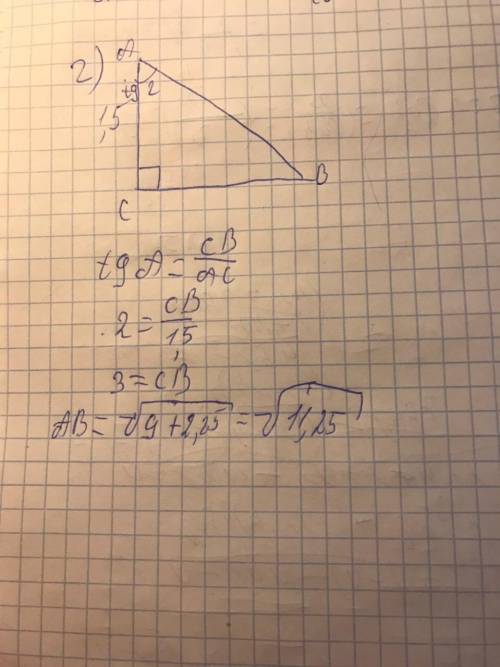 2)
A
tg 2
1,5
C
B
tg A = CB/AC
2 = CB/1,5
3 = CB
AB = √9+2,25 = √11,25